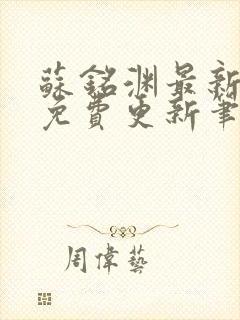 蘇銘渊最新
免費更新筆
周偉藝